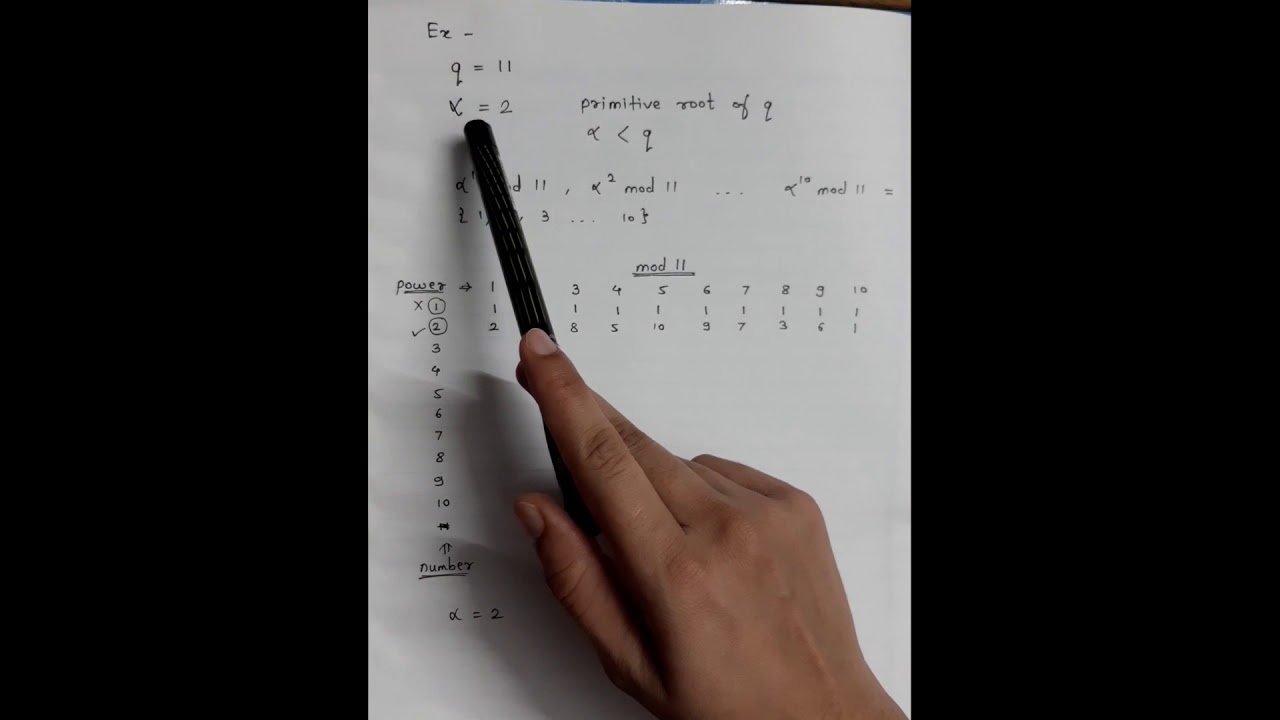 Ex -
q = 11
α = 2 primitive root of q
α < q
α mod 11 , α² mod 11 ... α¹⁰ mod 11 =
{ 1, 3 ... 10}
mod 11
power → 1 3 4 5 6 7 8 9 10
x 1 1 1 1 1 1 1 1 1 1
✓ 2 2 8 5 10 9 7 3 6 1
3
4
5
6
7
8
9
10
⇑
number
α = 2